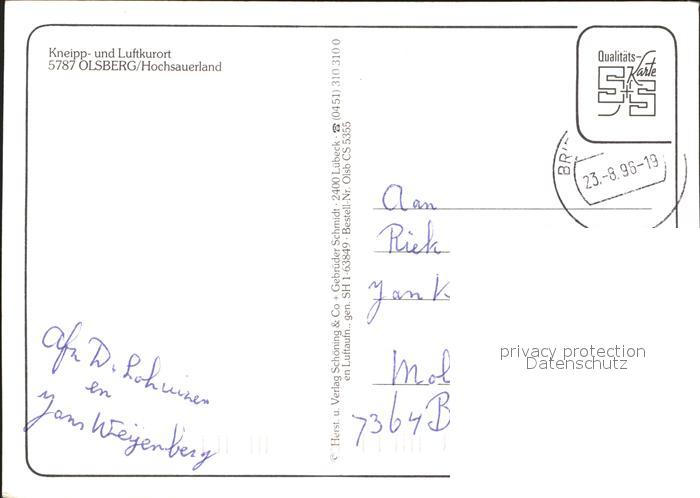 Kneipp- und Luftkurort
5787 OLSBERG/Hochsauerland
Qualitäts-
Karte
S+S
23.-8.96-19
© Herst. u. Verlag Schöning & Co + Gebrüder Schmidt · 2400 Lübeck · ☎ (0451) 310 310 0
en Luftaufn., gen. SH 1-63849 · Bestell-Nr. Olsb CS 5355
Aan
Riek
Jan
Mol
7364 B
Afz D. Lohuizen
en
Jans Weijenberg
privacy protection
Datenschutz